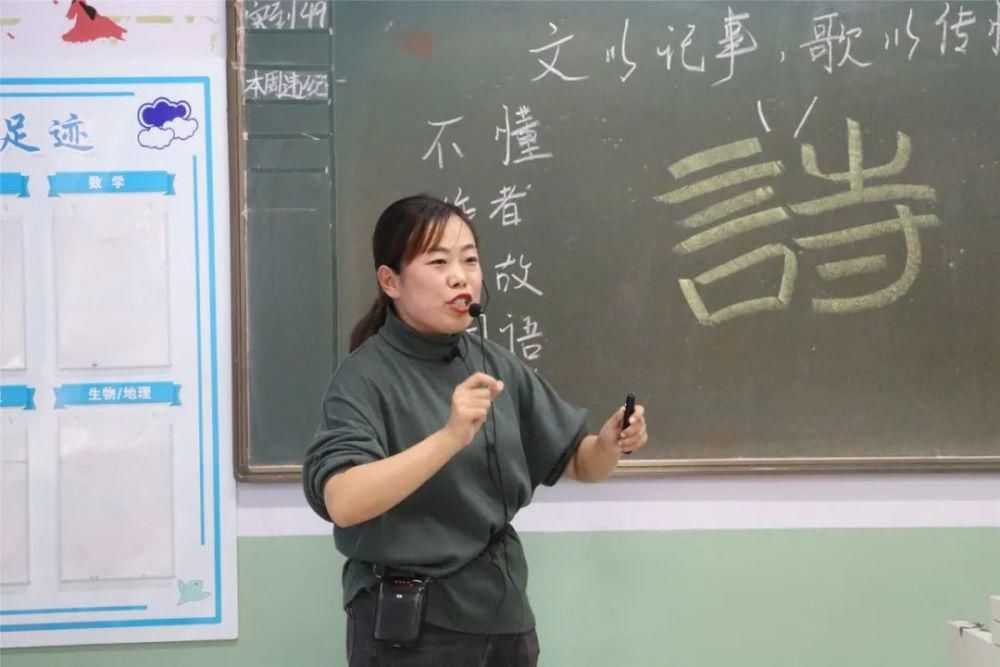 足迹
数学
生物/地理
实到49
本周违纪
文以记事，歌以传
不懂
者
故
语
詩